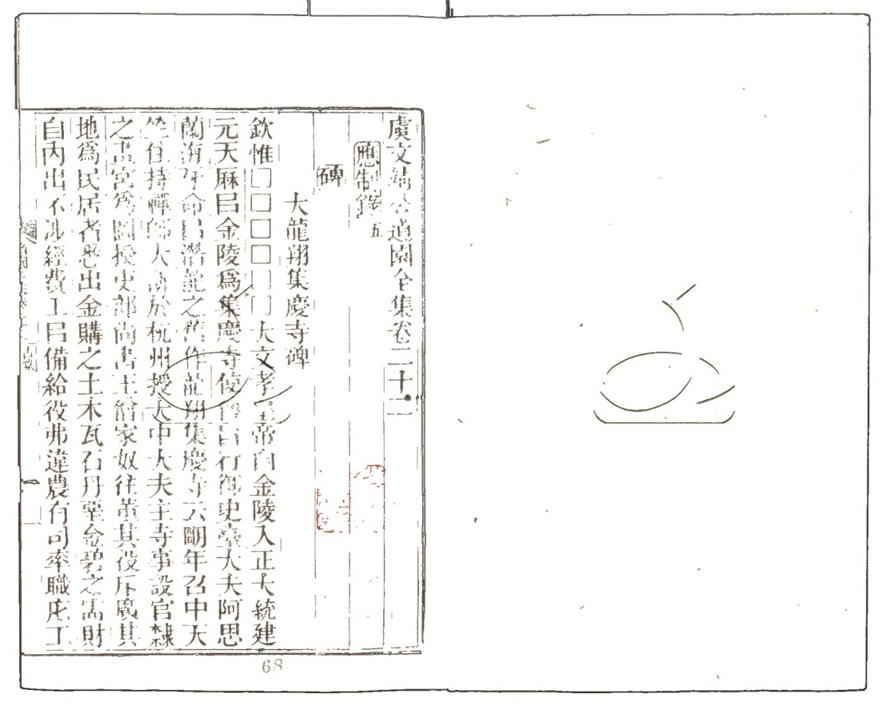 虞文靖公道園全集卷二十二
應制錄五
碑
大龍翔集慶寺碑
欽惟□□□□□□大文孝皇帝自金陵入正大統建
元天厤㠯金陵爲集慶寺使傳旨行御史臺大夫阿思
蘭海牙命㠯潛龍之舊作龍翔集慶寺云明年召中天
竺住持禪師大訢於杭州授大中大夫主寺事設官隸
之畫宮爲圖授吏部尚書王僧家奴往董其役斥廣其
地爲民居者悉出金購之土木瓦石丹堊金碧之需財
自內出不涉經費工㠯備給役弗違農有司率職庀工
68